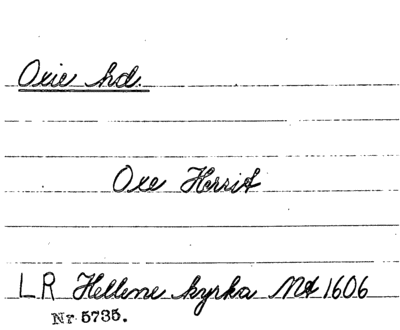 Oxie hd.
Oxe Herrit
LR Hellene kyrka Nd 1606
Nr 5735.